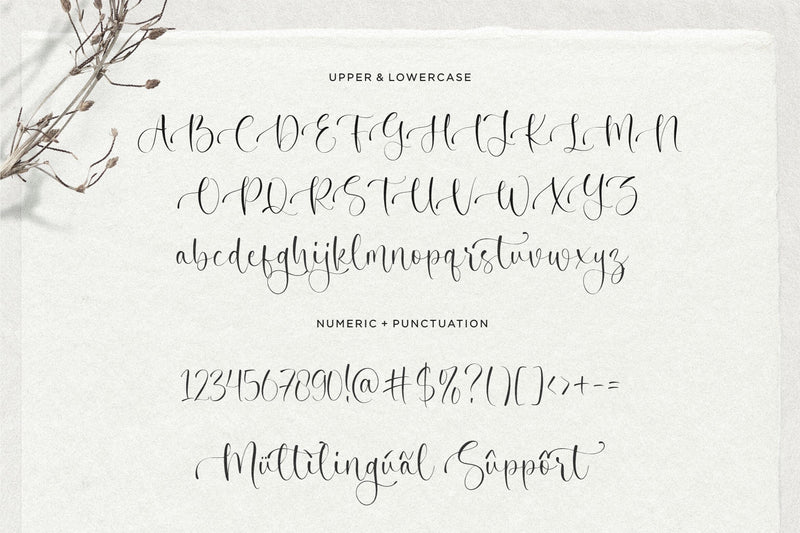 UPPER & LOWERCASE
A B C D E F G H I J K L M N
O P Q R S T U V W X Y Z
abcdefghijklmnopqrstuvwxyz
NUMERIC + PUNCTUATION
1234567890!@#$%?()[]<>+-=
Mültìlingúãl Sûppôrt